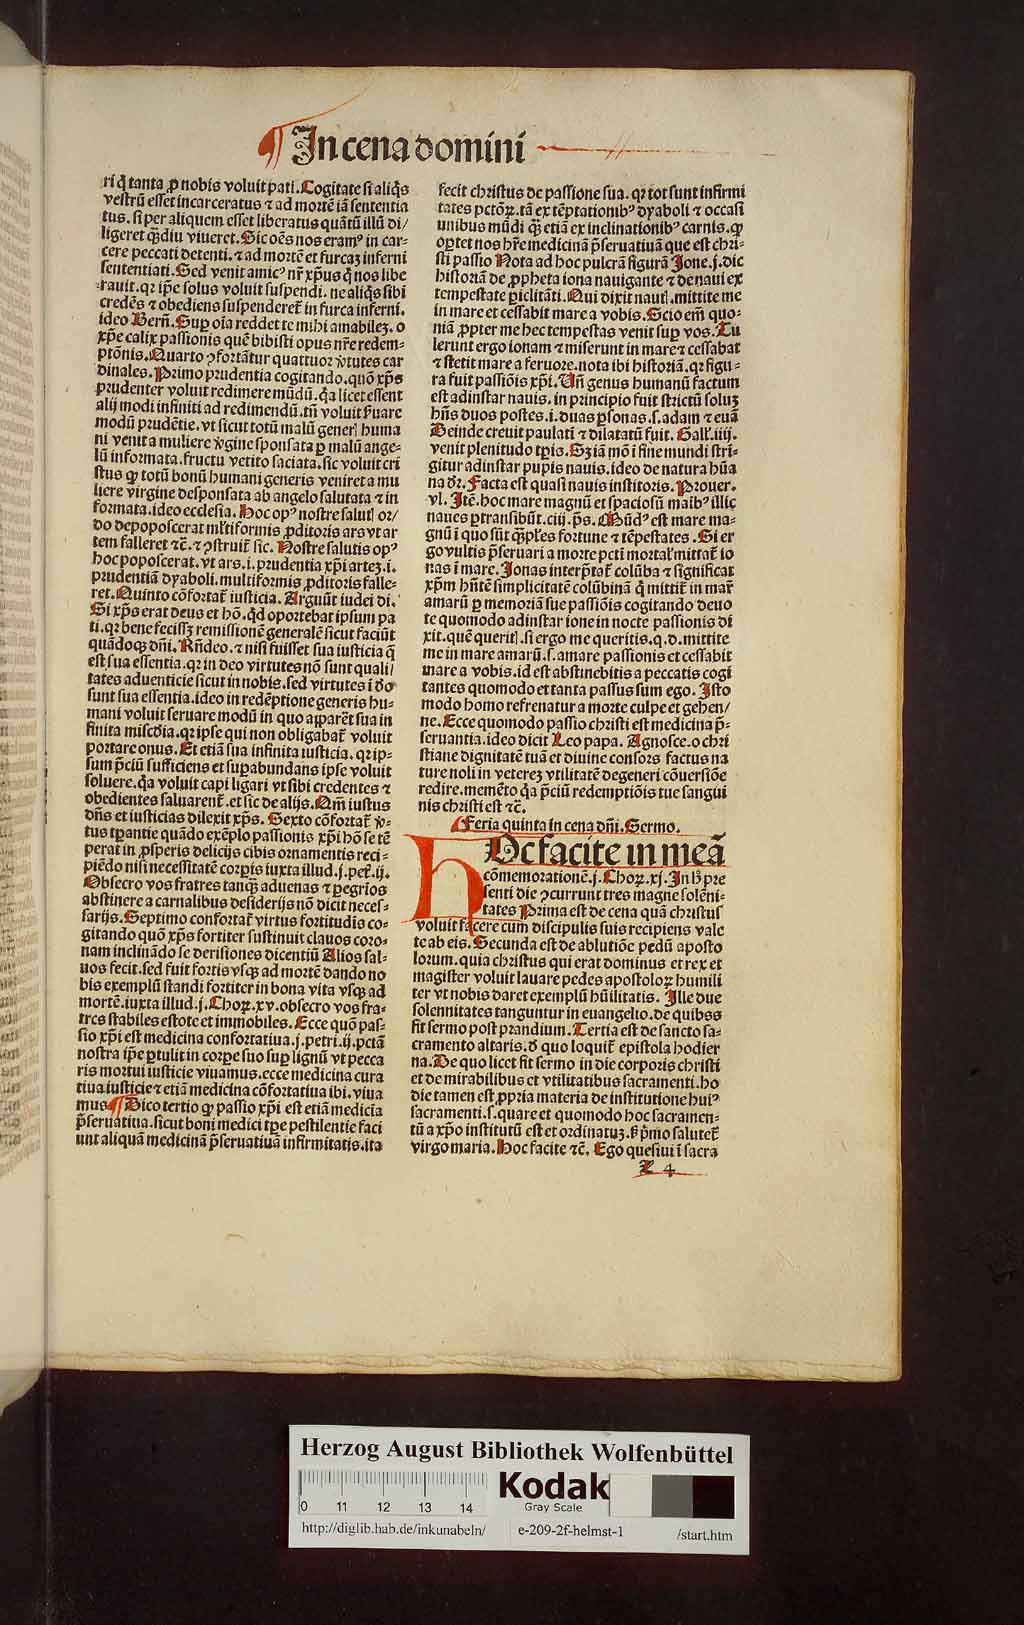 ¶ In cena domini
ri q̄ tanta ꝓ nobis voluit pati. Cogitate si aliq̄s
vestrū esset incarceratus ⁊ ad mortē iā sententia
tus. si per aliquem esset liberatus quātū illū di/
ligeret qm̄diu viueret. Sic oēs nos eramꝰ in car-
cere peccati detenti. ⁊ ad mortē et furcaꝫ inferni
sententiati. Sed venit amicꝰ nr̄ xp̄us q̄ nos libe
rauit. qꝛ ip̄e solus voluit suspendi. ne aliq̄s sibi
credēs ⁊ obediens suspenderet̄ in furca inferni.
ideo Bern̄. Suꝑ oīa reddet te mihi amabileꝫ. o
xp̄e calix passionis quē bibisti opus nr̄e redem-
ptōnis. Quarto ꝯfortātur quattuor v̄tutes car
dinales. Primo prudentia cogitando. quō xp̄s
prudenter voluit redimere mūdū. q̄a licet essent
alij modi infiniti ad redimendū. tn̄ voluit ẜuare
modū prudētie. vt sicut totū malū generꝭ huma
ni venit a muliere v̄gine sponsata ꝑ malū ange-
lū informata. fructu vetito saciata. sic voluit cri
stus ꝙ totū bonū humani generis veniret a mu
liere virgine desponsata ab angelo salutata ⁊ in
formata. ideo ecclesia. Hoc opꝰ nostre salutꝭ or/
do depoposcerat ml̄tiformis ꝓditoris ars vt ar
tem falleret ⁊c̄. ⁊ ꝯstruit̄ sic. Nostre salutis opꝰ
hoc poposcerat. vt ars .i. prudentia xp̄i arteꝫ .i.
prudentiā dyaboli. multiformis ꝓditoris falle-
ret. Quinto cōfortat̄ iusticia. Arguūt iudei di.
Si xp̄s erat deus et hō. q̄d oportebat ipsum pa
ti. qꝛ bene fecissꝫ remissionē generalē sicut faciūt
quādoqꝫ dn̄i. Rn̄deo. ⁊ nisi fuisset sua iusticia q̄
est sua essentia. qꝛ in deo virtutes nō sunt quali/
tates aduenticie sicut in nobis. sed virtutes ī deo
sunt sua essentia. ideo in redēptione generis hu-
mani voluit seruare modū in quo apparēt sua in
finita misc̄dia. qꝛ ipse qui non obligabat̄ voluit
portare onus. Et etiā sua infinita iusticia. qꝛ ip-
sum p̄ciū sufficiens et suꝑabundans ipse voluit
soluere. q̄a voluit capi ligari vt sibi credentes ⁊
obedientes saluarent̄. et sic de alijs. Qm̄ iustus
dn̄s et iusticias dilexit xp̄s. Sexto cōfortat̄ v̄-
tus tꝑantie quādo exēplo passionis xp̄i hō se tē
perat in ꝓsperis delicijs cibis ornamentis reci-
piēdo nisi necessitatē corꝑis iuxta illud .j. pet̄. ij.
Obsecro vos fratres tanqꝫ aduenas ⁊ ꝑegrios
abstinere a carnalibus desiderijs nō dicit neces-
sarijs. Septimo confortat̄ virtus fortitudis co-
gitando quō xp̄s fortiter sustinuit clauos coro-
nam inclināndo se derisiones dicentiū Alios sal-
uos fecit. sed fuit fortis vsqꝫ ad mortē dando no
bis exemplū standi fortiter in bona vita vsqꝫ ad
mortē. iuxta illud .j. Choꝝ. xv. obsecro vos fra-
tres stabiles estote et immobiles. Ecce quō pas-
sio xp̄i est medicina confortatiua .j. petri. ij. pctā
nostra ip̄e ꝑtulit in corꝑe suo suꝑ lignū vt pecca
ris mortui iusticie viuamus. ecce medicina cura
tiua iusticie ⁊ etiā medicina cōfortatiua ibi. viua
mus ¶ Dico tertio ꝙ passio xp̄i est etiā medicīa
p̄seruatiua. sicut boni medici tꝑe pestilentie faci
unt aliquā medicinā p̄seruatiuā infirmitatis. ita
fecit christus de passione sua. qꝛ tot sunt infirmi
tates pctōꝝ. tā ex tēptationibꝰ dyaboli ⁊ occasi
unibus mūdi qꝫ etiā ex inclinationibꝰ carnis. ꝙ
oꝑtet nos hr̄e medicinā p̄seruatiuā que est chri-
sti passio Nota ad hoc pulcrā figurā Jone .j. dic
historiā de ꝓpheta iona nauigante ⁊ de naui ex
tempestate ꝑiclitāti. Qui dixit nautꝭ. mittite me
in mare et cessabit mare a vobis. Scio em̄ quo-
niā ꝓpter me hec tempestas venit suꝑ vos. Tu
lerunt ergo ionam ⁊ miserunt in mare ⁊ cessabat
⁊ stetit mare a feruore. nota ibi historiā. qꝛ figu-
ra fuit passiōis xp̄i. Un̄ genus humanū factum
est ad instar nauis. in principio fuit strictū soluꝫ
hn̄s duos postes .i. duas ꝑsonas .s. adam ⁊ euā
Deinde creuit paulatī ⁊ dilatatū fuit. Gall̄. iiij.
venit plenitudo tꝑis. Sꝫ iā mō ī fine mundi stri-
gitur ad instar pupis nauis. ideo de natura hūa
na dr̄. Facta est quasi nauis institoris. Prouer.
vl. Itē. hoc mare magnū et spaciosū maibꝰ illic
naues ꝑtransibūt. ciij. p̄s. Mūdꝰ est mare ma-
gnū ī quo sūt qm̄ples fortune ⁊ tēpestates. Si er
go vultis p̄seruari a morte pcti mortal̄ mittat̄ io
nas ī mare. Jonas interp̄tat̄ colūba ⁊ significat
xp̄m hn̄tē simplicitatē colūbinā q̄ mittit̄ in mar̄
amarū ꝑ memoriā sue passiōis cogitando deuo
te quomodo ad instar ione in nocte passionis di
xit. quē queritꝭ. si ergo me queritis. q. d. mittite
me in mare amarū .s. amare passionis et cessabit
mare a vobis. id est abstinebitis a peccatis cogi
tantes quomodo et tanta passus sum ego. Isto
modo homo refrenatur a morte culpe et gehen/
ne. Ecce quomodo passio christi est medicina p̄-
seruantia. ideo dicit Leo papa. Agnosce. o chri
stiane dignitatē tuā et diuine consors factus na
ture noli in vetereꝫ vtilitatē degeneri cōuersiōe
redire. memēto q̄a p̄ciū redemptiōis tue sangui
nis christi est ⁊c̄.
¶ Feria quinta in cena dn̄i. Sermo.
HOc facite in meā
cōmemorationē .j. Choꝝ. xj. In hͦ pre
senti die ꝯcurrunt tres magne solēni-
tates Prima est de cena quā christus
voluit facere cum discipulis suis recipiens vale
te ab eis. Secunda est de ablutiōe pedū aposto
lorum. quia christus qui erat dominus et rex et
magister voluit lauare pedes apostoloꝝ humili
ter vt nobis daret exemplū hūilitatis. Ille due
solennitates tanguntur in euangelio. de quibus
fit sermo post prandium. Tertia est de sancto sa-
cramento altaris. de quo loquit̄ epistola hodier
na. De quo licet fit sermo in die corporis christi
et de mirabilibus et vtilitatibus sacramenti. ho
die tamen est ꝓpria materia de institutione huiꝰ
sacramenti .s. quare et quomodo hoc sacramen-
tū a xp̄o institutū est et ordinatuꝫ. sꝫ p̄mo salutet̄
virgo maria. Hoc facite ⁊c̄. Ego quesiui ī sacra
Z 4
Herzog August Bibliothek Wolfenbüttel
0 11 12 13 14
Kodak
Gray Scale
http://diglib.hab.de/inkunabeln/ e-209-2f-helmst-1 /start.htm